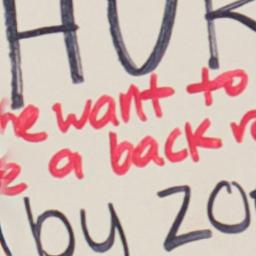 HUR
he want to
e a back r
by zo